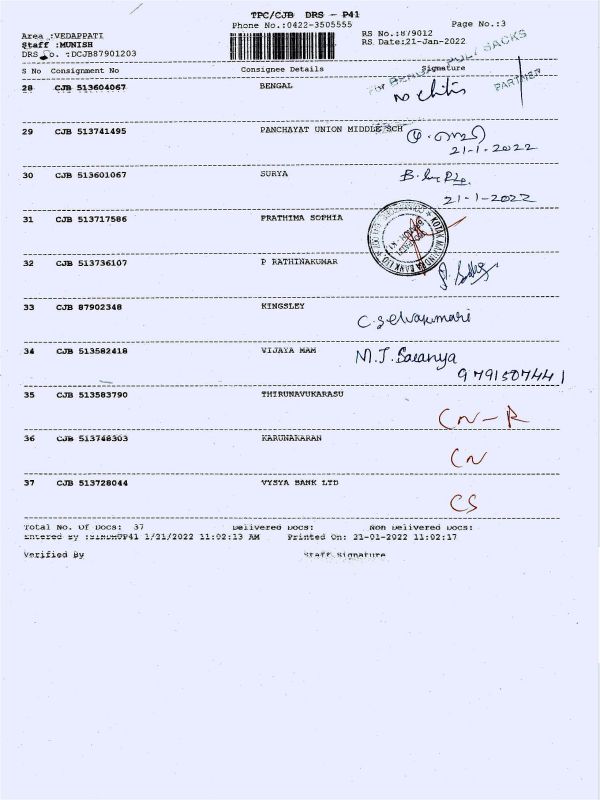 TPC/CJB DRS - P41
Phone No.:0422-3505555 Page No.:3
Area :VEDAPPATI RS No:879012
Staff :MUNISH RS Date:21-Jan-2022
DRS No. :DCJB87901203
S No Consignment No Consignee Details Signature
28 CJB 513604067 BENGAL
SACKS
PARTNER
29 CJB 513741495 PANCHAYAT UNION MIDDLE SCH
21-1-2022
30 CJB 513601067 SURYA
21-1-2022
31 CJB 513717586 PRATHIMA SOPHIA
KOTAK MAHINDRA BANK LTD
32 CJB 513736107 P RATHINAKUMAR
33 CJB 87902348 KINGSLEY
C. Selvakumari
34 CJB 513582418 VIJAYA MAM M.J. Saranya
9791507441
35 CJB 513583790 THIRUNAVUKARASU
CN-R
36 CJB 513748303 KARUNAKARAN
CN
37 CJB 513728044 VYSYA BANK LTD
CS
Total No. Of Docs: 37 Delivered Docs: Non Delivered Docs:
Entered By 1/21/2022 11:02:13 AM Printed On: 21-01-2022 11:02:17
Verified By Staff Signature